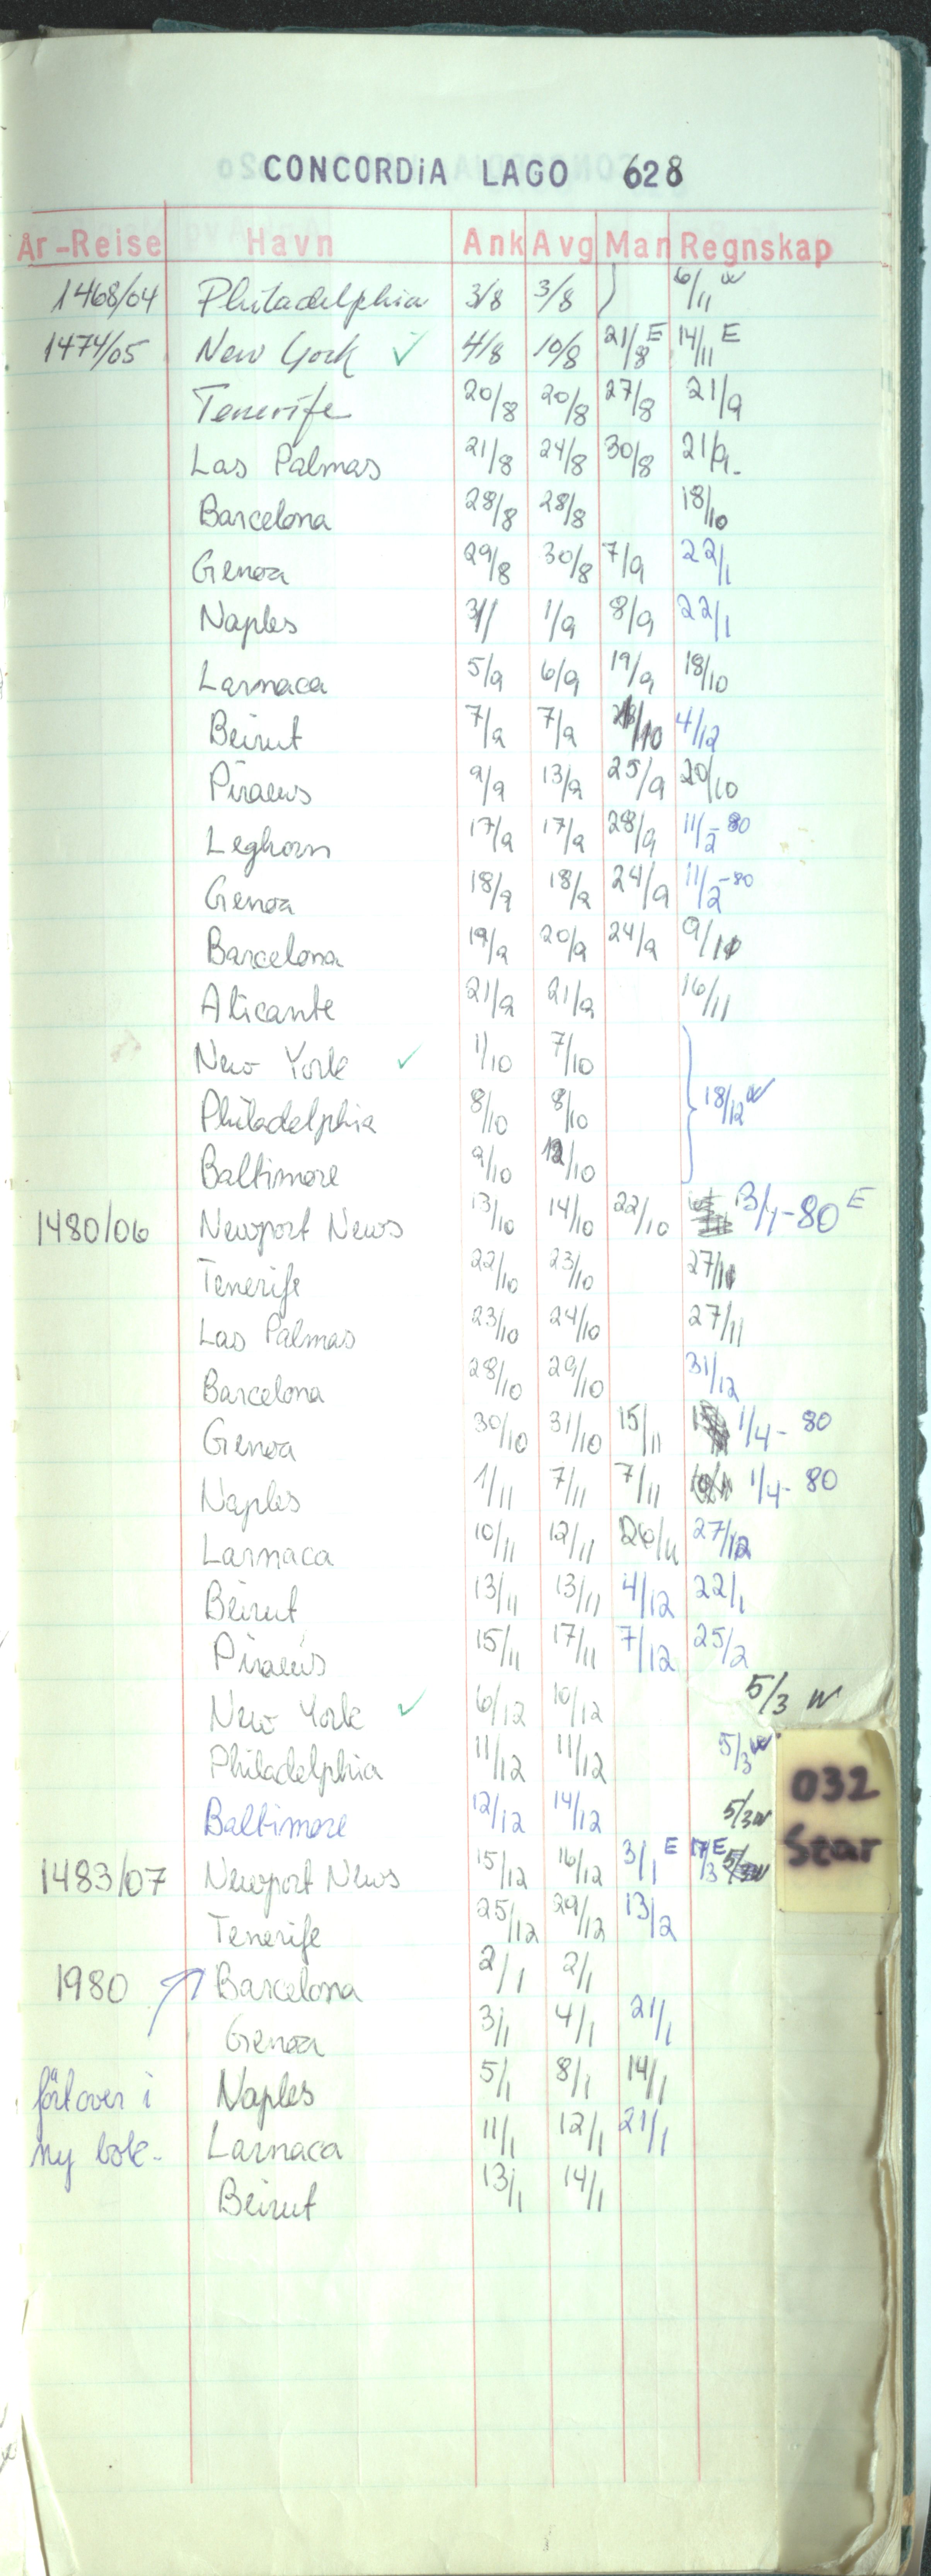 CONCORDiA LAGO 628
År-Reise Havn Ank Avg Man Regnskap
1468/04 Philadelphia 3/8 3/8 ) 6/11 W
1474/05 New York ✓ 4/8 10/8 21/8 E 14/11 E
Tenerife 20/8 20/8 27/8 21/9
Las Palmas 21/8 24/8 30/8 21/9-
Barcelona 28/8 28/8 18/10
Genoa 29/8 30/8 7/9 22/1
Naples 31/ 1/9 8/9 22/1
Larnaca 5/9 6/9 19/9 18/10
Beirut 7/9 7/9 4/12
Piraeus 9/9 13/9 25/9 20/10
Leghorn 17/9 17/9 28/9 11/2-80
Genoa 18/9 18/9 24/9 11/2-80
Barcelona 19/9 20/9 24/9 9/11
Alicante 21/9 21/9 16/11
New York ✓ 1/10 7/10
Philadelphia 8/10 8/10 } 18/12 W
Baltimore 9/10 12/10
1480/06 Newport News 13/10 14/10 22/10 13/1-80 E
Tenerife 22/10 23/10 27/11
Las Palmas 23/10 24/10 27/11
Barcelona 28/10 29/10 31/12
Genoa 30/10 31/10 15/11 1/4-80
Naples 1/11 7/11 7/11 1/4-80
Larnaca 10/11 12/11 26/11 27/12
Beirut 13/11 13/11 4/12 22/1
Piraeus 15/11 17/11 7/12 25/2
New York ✓ 6/12 10/12 5/3 W
Philadelphia 11/12 11/12 5/3 W
Baltimore 12/12 14/12 5/3 W
1483/07 Newport News 15/12 16/12 3/1 E 17/3 E
Tenerife 25/12 29/12 13/2
1980 Barcelona 2/1 2/1
Genoa 3/1 4/1 21/1
førtover i Naples 5/1 8/1 14/1
ny bok- Larnaca 11/1 12/1 21/1
Beirut 13/1 14/1
032
Star